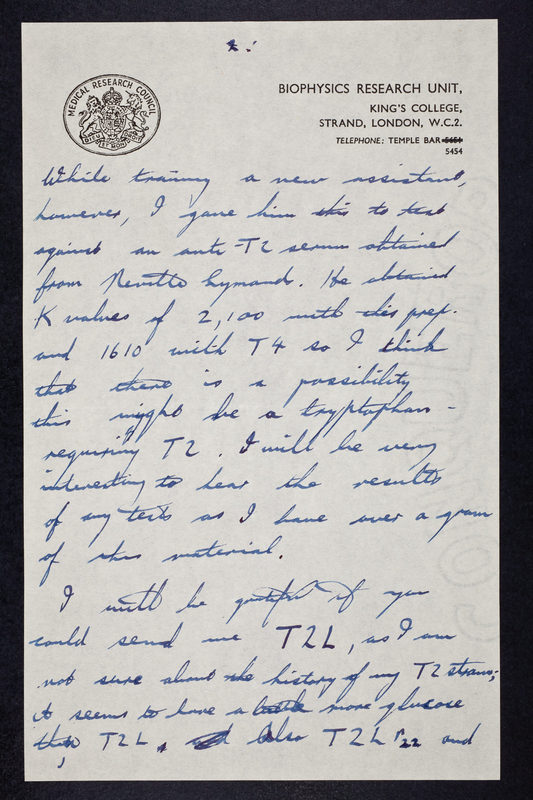 2.
MEDICAL RESEARCH COUNCIL
DIEU ET MON DROIT
BIOPHYSICS RESEARCH UNIT,
KING'S COLLEGE,
STRAND, LONDON, W.C.2.
TELEPHONE: TEMPLE BAR 5651
5454
While training a new assistant,
however, I gave him this to test
against an anti-T2 serum obtained
from Neville Symonds. He obtained
K values of 2,100 with this prep.
and 1610 with T4 so I think
that there is a possibility
this might be a tryptophan-
requiring T2. I will be very
interesting to hear the results
of any tests as I have over a gram
of this material.
I will be grateful if you
could send me T2L, as I am
not sure about the history of my T2 strain;
it seems to have a little more glucose
than T2L. Also T2L r22 and